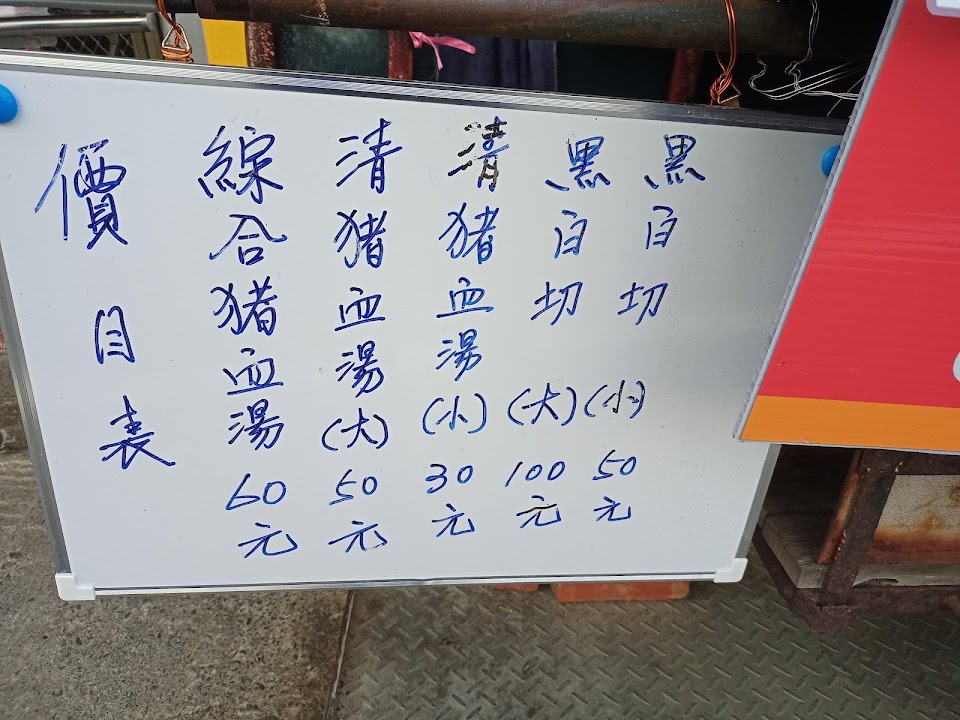 價目表
綜合猪血湯60元
清猪血湯(大)50元
清猪血湯(小)30元
黑白切(大)100元
黑白切(小)50元